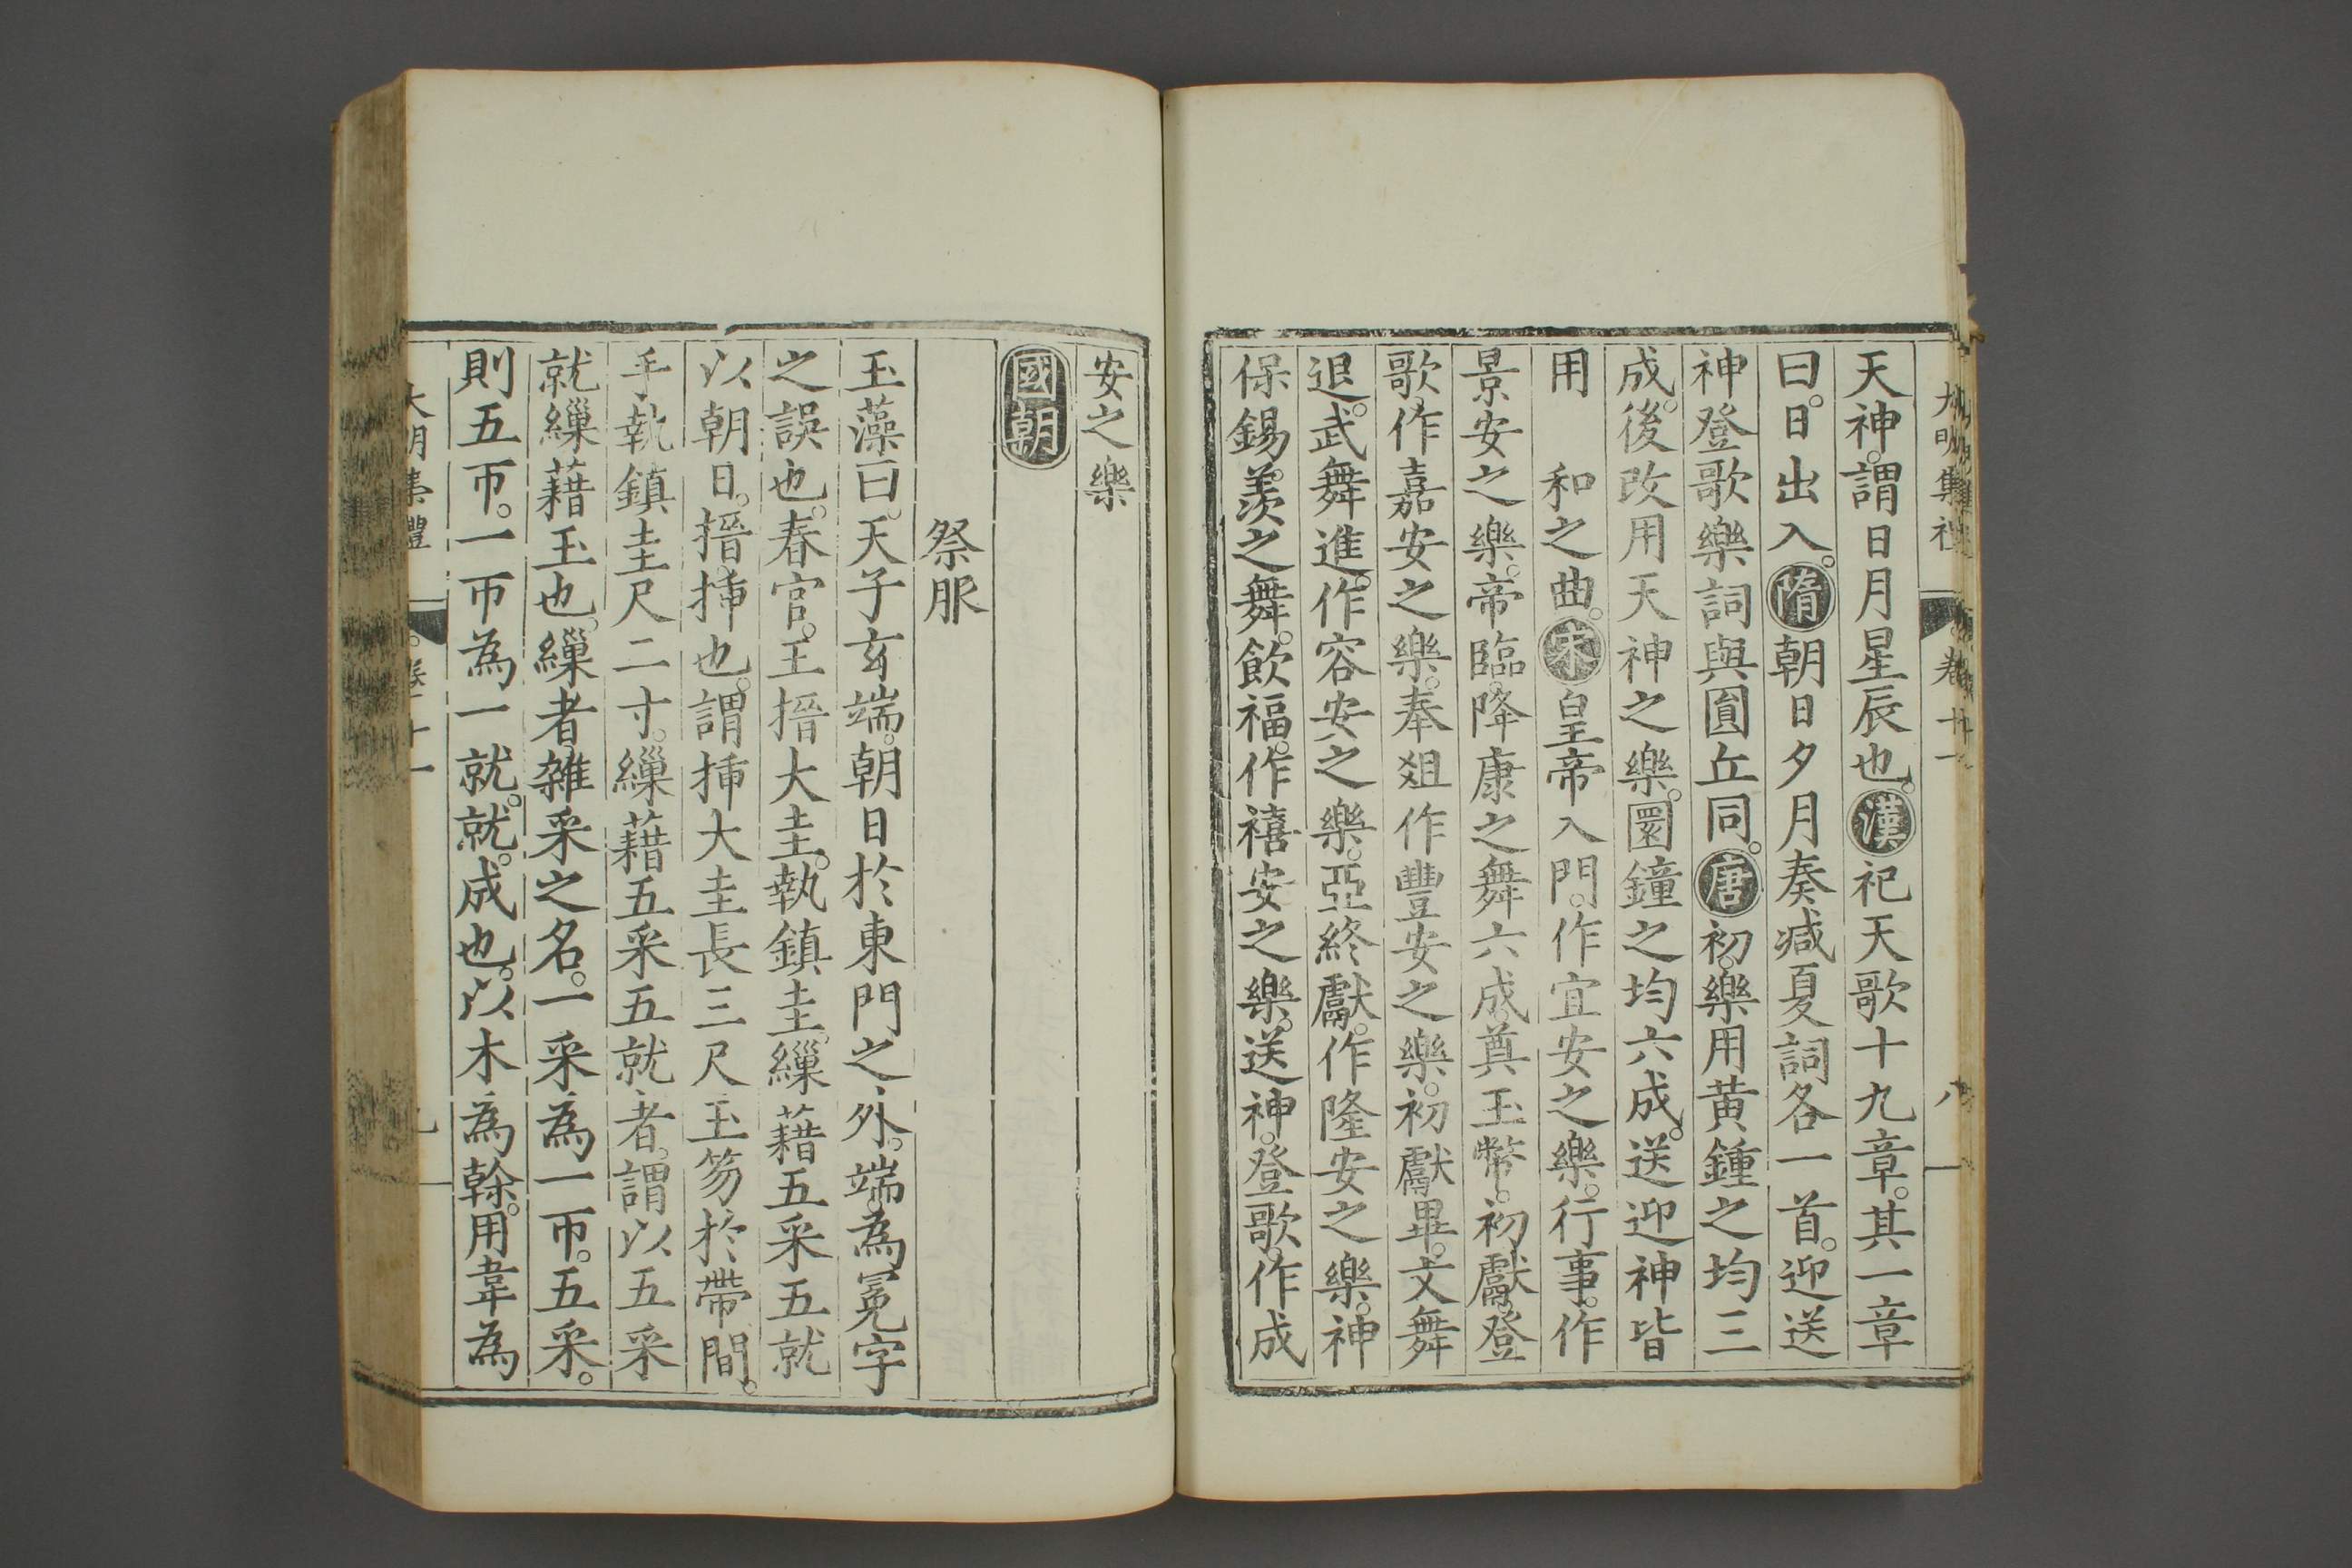 大明集禮 卷十一 八
天神。謂日月星辰也。漢祀天歌十九章。其一章
曰。日出入。隋朝日夕月奏諴夏詞各一首。迎送
神登歌樂詞與圓丘同。唐初。樂用黄鍾之均三
成。後改用天神之樂。圜鐘之均六成。送迎神皆
用 和之曲。宋皇帝入門。作宜安之樂。行事。作
景安之樂。帝臨。降康之舞六成。奠玉幣。初獻。登
歌。作嘉安之樂。奉俎作豐安之樂。初獻畢。文舞
退。武舞進。作容安之樂。亞終獻。作隆安之樂。神
保錫羨之舞。飲福。作禧安之樂。送神。登歌。作成
安之樂
國朝
祭服
玉藻曰。天子玄端。朝日於東門之外。端。為冕字
之誤也。春官。王搢大圭。執鎮圭。繅藉五采五就
以朝日。搢。挿也。謂挿大圭長三尺玉笏於帶間。
手執鎮圭尺二寸。繅藉五采五就者。謂以五采
就繅藉玉也。繅者。雜采之名。一采為一帀。五采。
則五帀。一帀為一就。就。成也。以木為榦。用韋為
大明集禮 卷十一